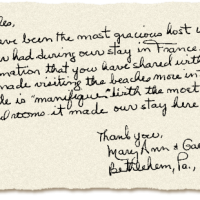 have been the most gracious host we
had during our stay in France.
that you have shared with
made visiting the beaches more
is "manifique" with the most
rooms it made our stay here
Thank you,
Mary Ann &
Bethlehem, Pa.,